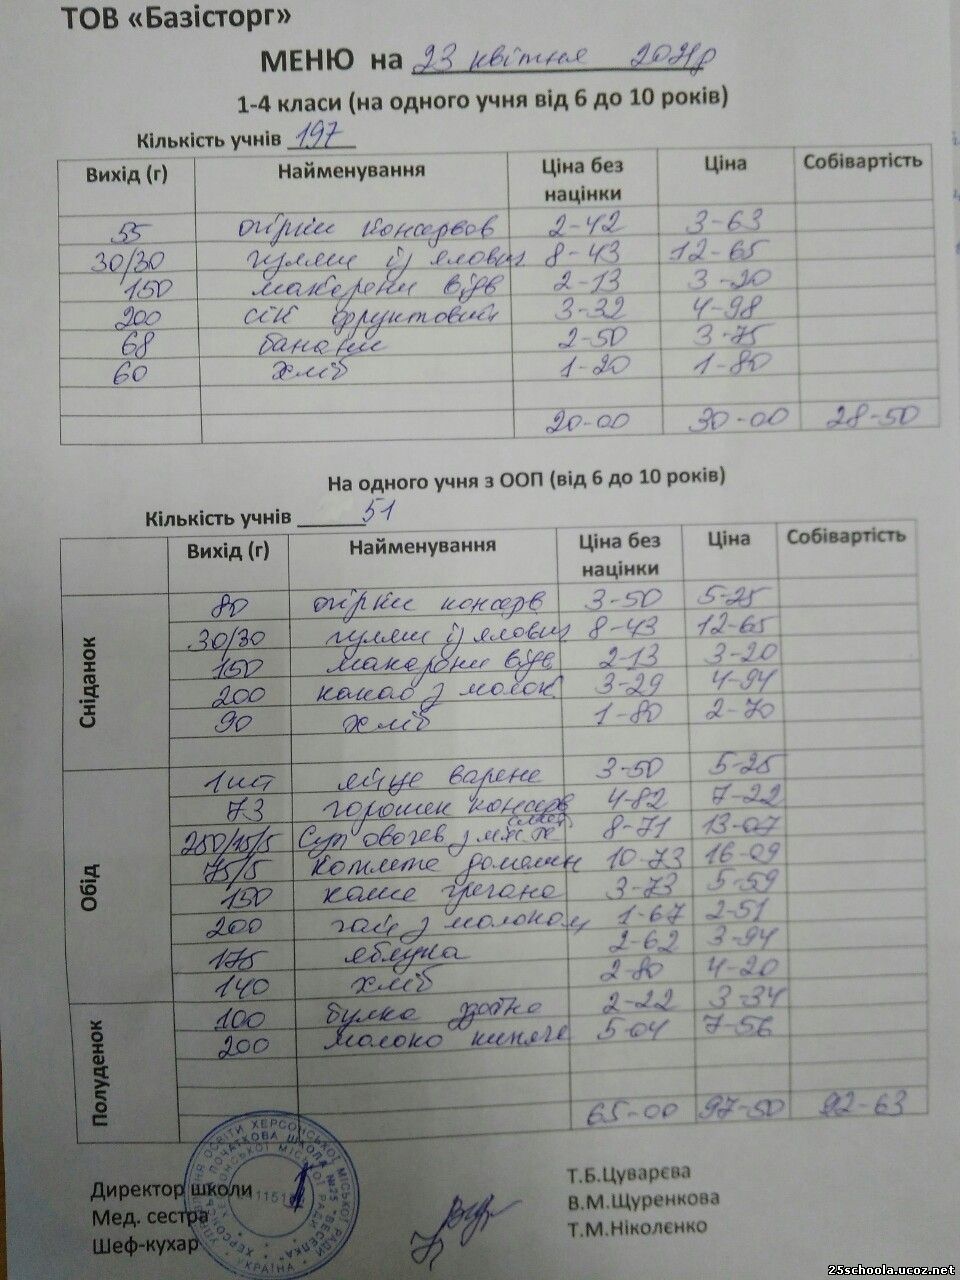 ТОВ «Базісторг»
МЕНЮ на 23 квітня 2021р
1-4 класи (на одного учня від 6 до 10 років)
Кількість учнів 197
Вихід (г) Найменування Ціна без націнки Ціна Собівартість
55 огірки консервов 2-42 3-63
30/30 гуляш із ялович 8-43 12-65
150 макарони відв 2-13 3-20
200 сік фруктовий 3-32 4-98
68 банани 2-50 3-75
60 хліб 1-20 1-80
20-00 30-00 28-50
На одного учня з ООП (від 6 до 10 років)
Кількість учнів 51
Вихід (г) Найменування Ціна без націнки Ціна Собівартість
Сніданок
80 огірки консерв 3-50 5-25
30/30 гуляш із ялович 8-43 12-65
150 макарони відв 2-13 3-20
200 какао з молок 3-29 4-94
90 хліб 1-80 2-70
Обід
1шт яйце варене 3-50 5-25
73 горошек консерв 4-82 7-22
250/15/5 Суп овочев з 8-71 13-07
75/5 Котлета домашн 10-73 16-09
150 каша гречана 3-73 5-59
200 чай з молоком 1-67 2-51
175 яблука 2-62 3-94
140 хліб 2-80 4-20
Полуденок
100 булка здобна 2-22 3-34
200 молоко кипяче 5-04 7-56
65-00 97-50 92-63
Директор школи Т.Б.Цуварєва
Мед. сестра В.М.Щуренкова
Шеф-кухар Т.М.Ніколєнко
25schoola.ucoz.net